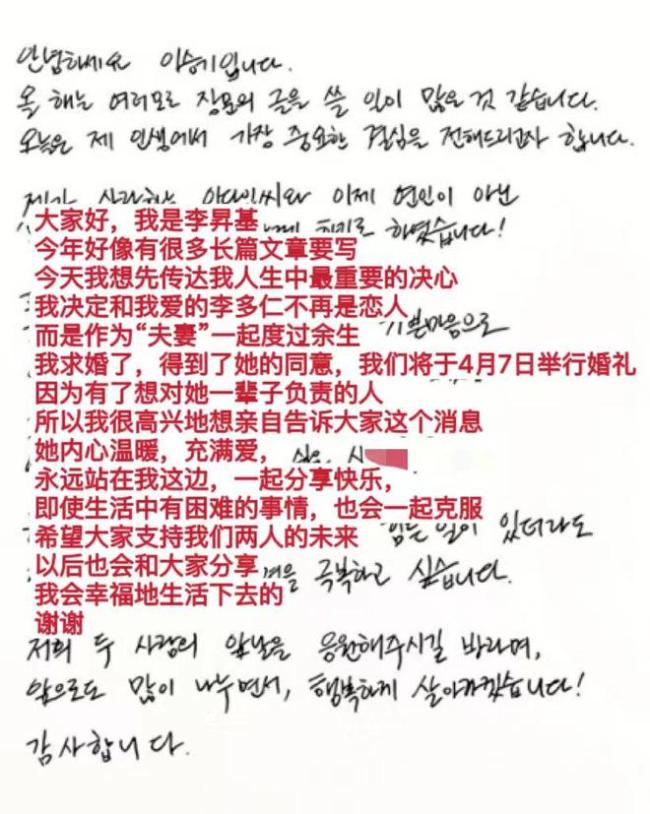 안녕하세요 이승기입니다.
올 해는 여러모로 장문의 글을 쓸 일이 많은 것 같습니다.
오늘은 제 인생에서 가장 중요한 결심을 전해드리고자 합니다.
제가 사랑하는 이다인씨와 이제 연인이 아닌
하였습니다!
大家好，我是李昇基
今年好像有很多长篇文章要写
今天我想先传达我人生中最重要的决心
我决定和我爱的李多仁不再是恋人
而是作为“夫妻”一起度过余生 기쁜마음으로
我求婚了，得到了她的同意，我们将于4月7日举行婚礼
因为有了想对她一辈子负责的人
所以我很高兴地想亲自告诉大家这个消息
她内心温暖，充满爱，
永远站在我这边，一起分享快乐，
即使生活中有困难的事情，也会一起克服
希望大家支持我们两人的未来 힘든 일이 있더라도
以后也会和大家分享 극복하고 싶습니다.
我会幸福地生活下去的
谢谢
저희 두 사람의 앞날을 응원해주시길 바라며,
앞으로도 많이 나누면서, 행복하게 살아가겠습니다!
감사합니다.